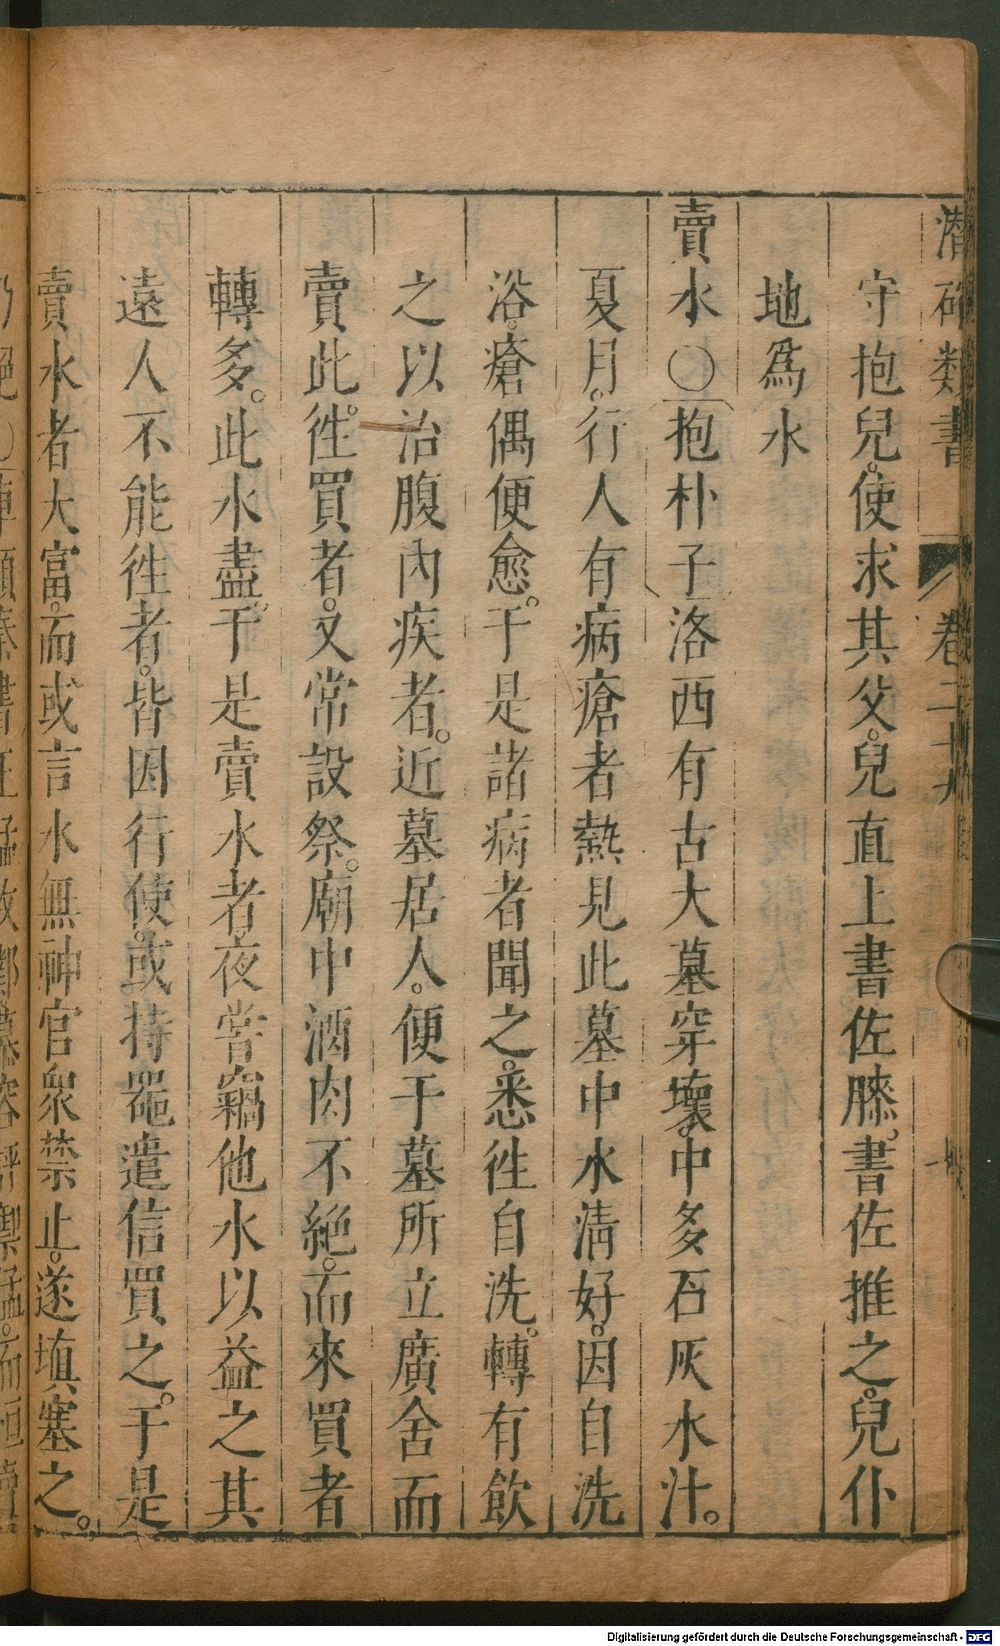 潛確類書 卷二十九
守抱兒。使求其父。兒直上書佐膝。書佐推之。兒仆
地爲水
賣水〇抱朴子洛西有古大墓穿壞。中多石灰水汁。
夏月。行人有病瘡者熱見此墓中水淸好。因自洗
浴。瘡偶便愈。于是諸病者聞之。悉徃自洗。轉有飮
之以治腹內疾者。近墓居人。便于墓所立廣舍而
賣此。徃買者。又常設祭。廟中酒肉不絕。而來買者
轉多。此水盡。于是賣水者。夜嘗竊他水以益之其
遠人不能徃者。皆因行使。或持噐遣信買之。于是
賣水者大富。而或言水無神官衆禁止。遂塡塞之。
Digitalisierung gefördert durch die Deutsche Forschungsgemeinschaft - DFG